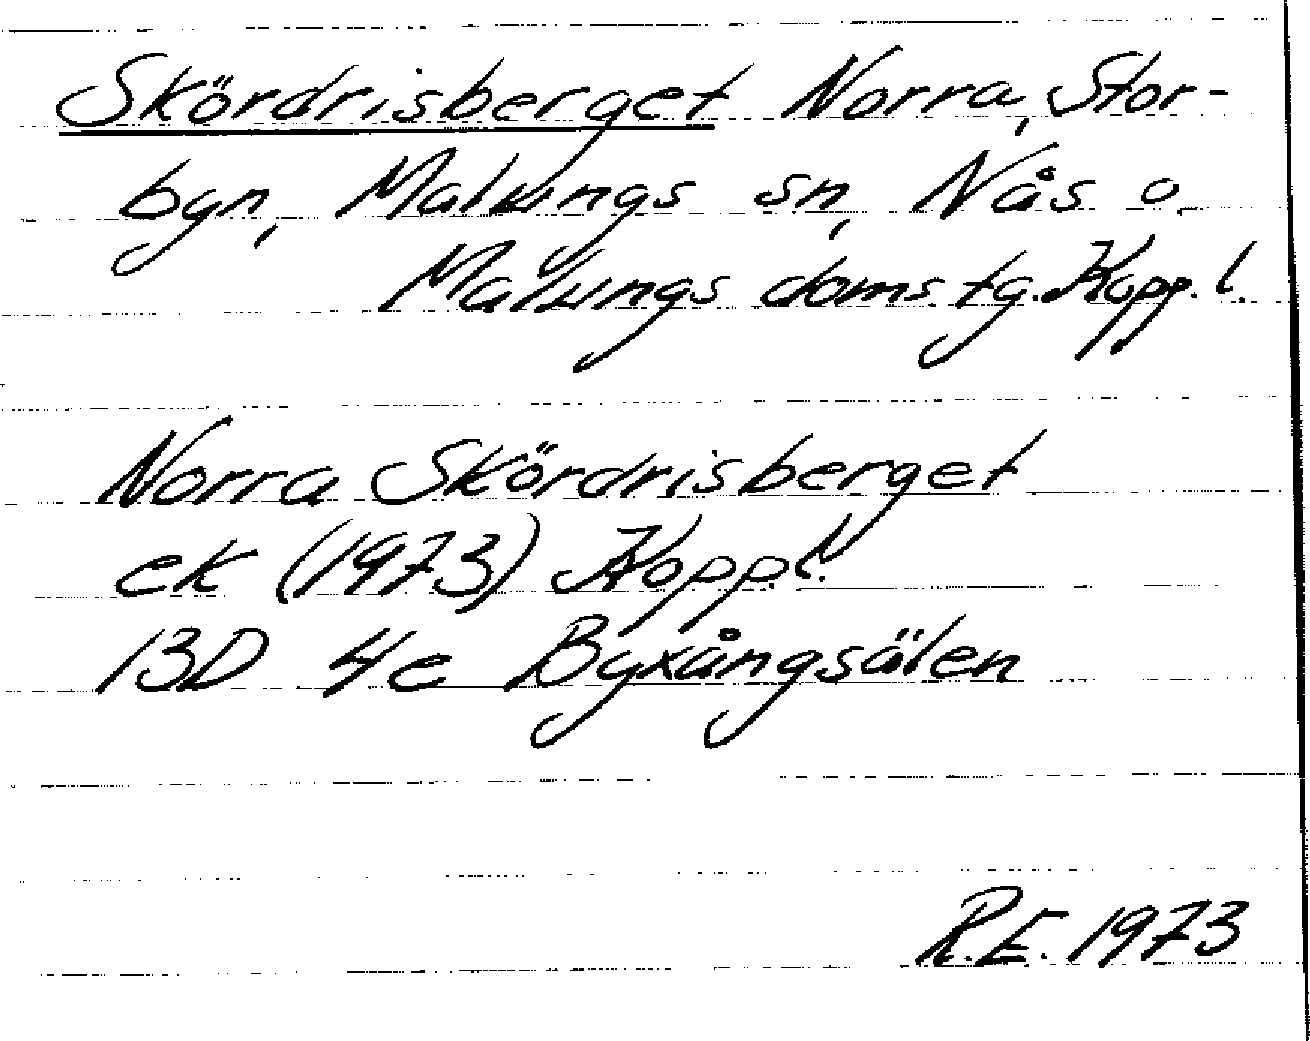 Skördrisberget Norra, Stor-
byn, Malungs sn, Nås o.
Malungs doms.tg. Kopp. l.
Norra Skördrisberget
ek (1973) Kopp.l.
13D 4e Byxångsälen
R.E. 1973